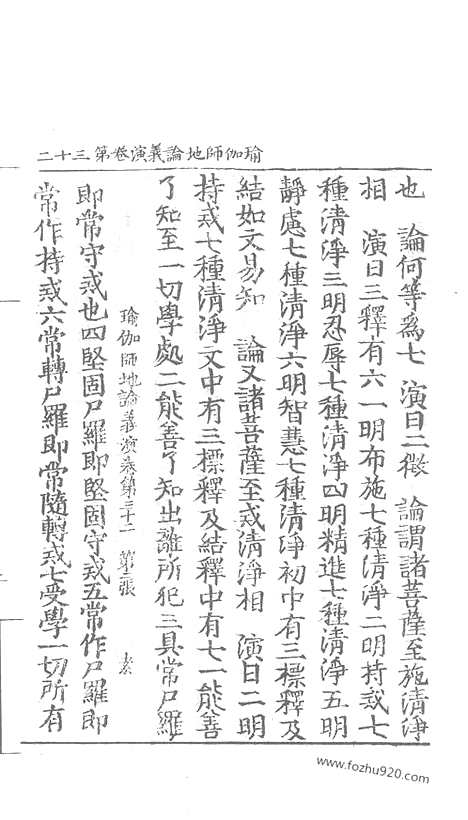 瑜伽師地論義演卷第三十二
也　論何等爲七　演曰二徵　論謂諸菩薩至施清淨
相　演曰三釋有六一明布施七種清淨二明持戒七
種清淨三明忍辱七種清淨四明精進七種清淨五明
靜慮七種清淨六明智慧七種清淨初中有三標釋及
結如文易知　論又諸菩薩至戒清淨相　演曰二明
持戒七種清淨文中有三標釋及結釋中有七一能善
了知至一切學處二能善了知出離所犯三具常尸羅
瑜伽師地論義演卷第三十二　第三張
即常守戒也四堅固尸羅即堅固守戒五常作尸羅即
常作持戒六常轉尸羅即常隨轉戒七受學一切所有
www.fozhu920.com